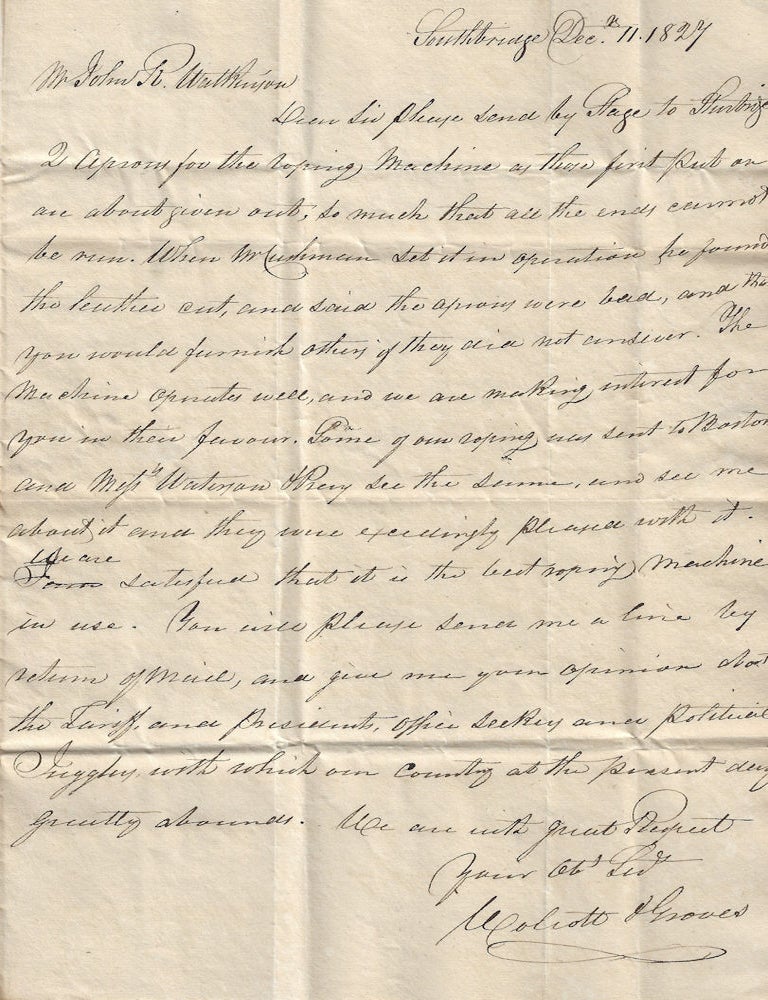 Southbridge Decr. 11. 1827
Mr John R. Watkinson
Dear Sir please send by Stage to Sturbridge
2 Aprons for the roping Machine as those first put on
are about given out, so much that all the ends cannot
be run. When Mr Cushman set it in operation he found
the leather cut, and said the aprons were bad, and that
you would furnish others if they did not answer. The
Machine operates well, and we are making interest for
you in their favour. Some of our roping was sent to Boston
and Messrs Waterson & Pray see the same, and see me
about it and they were exceedingly pleased with it.
We are
satisfied that it is the best roping Machine
in use. You will please send me a line by
return of Mail, and give me your opinion about
the Tariff, and Presidents, office seekers and political
Jugglers, with which our country at the present day
greatly abounds. We are with great Respect
Your Obt Servt
Wolcott & Groves